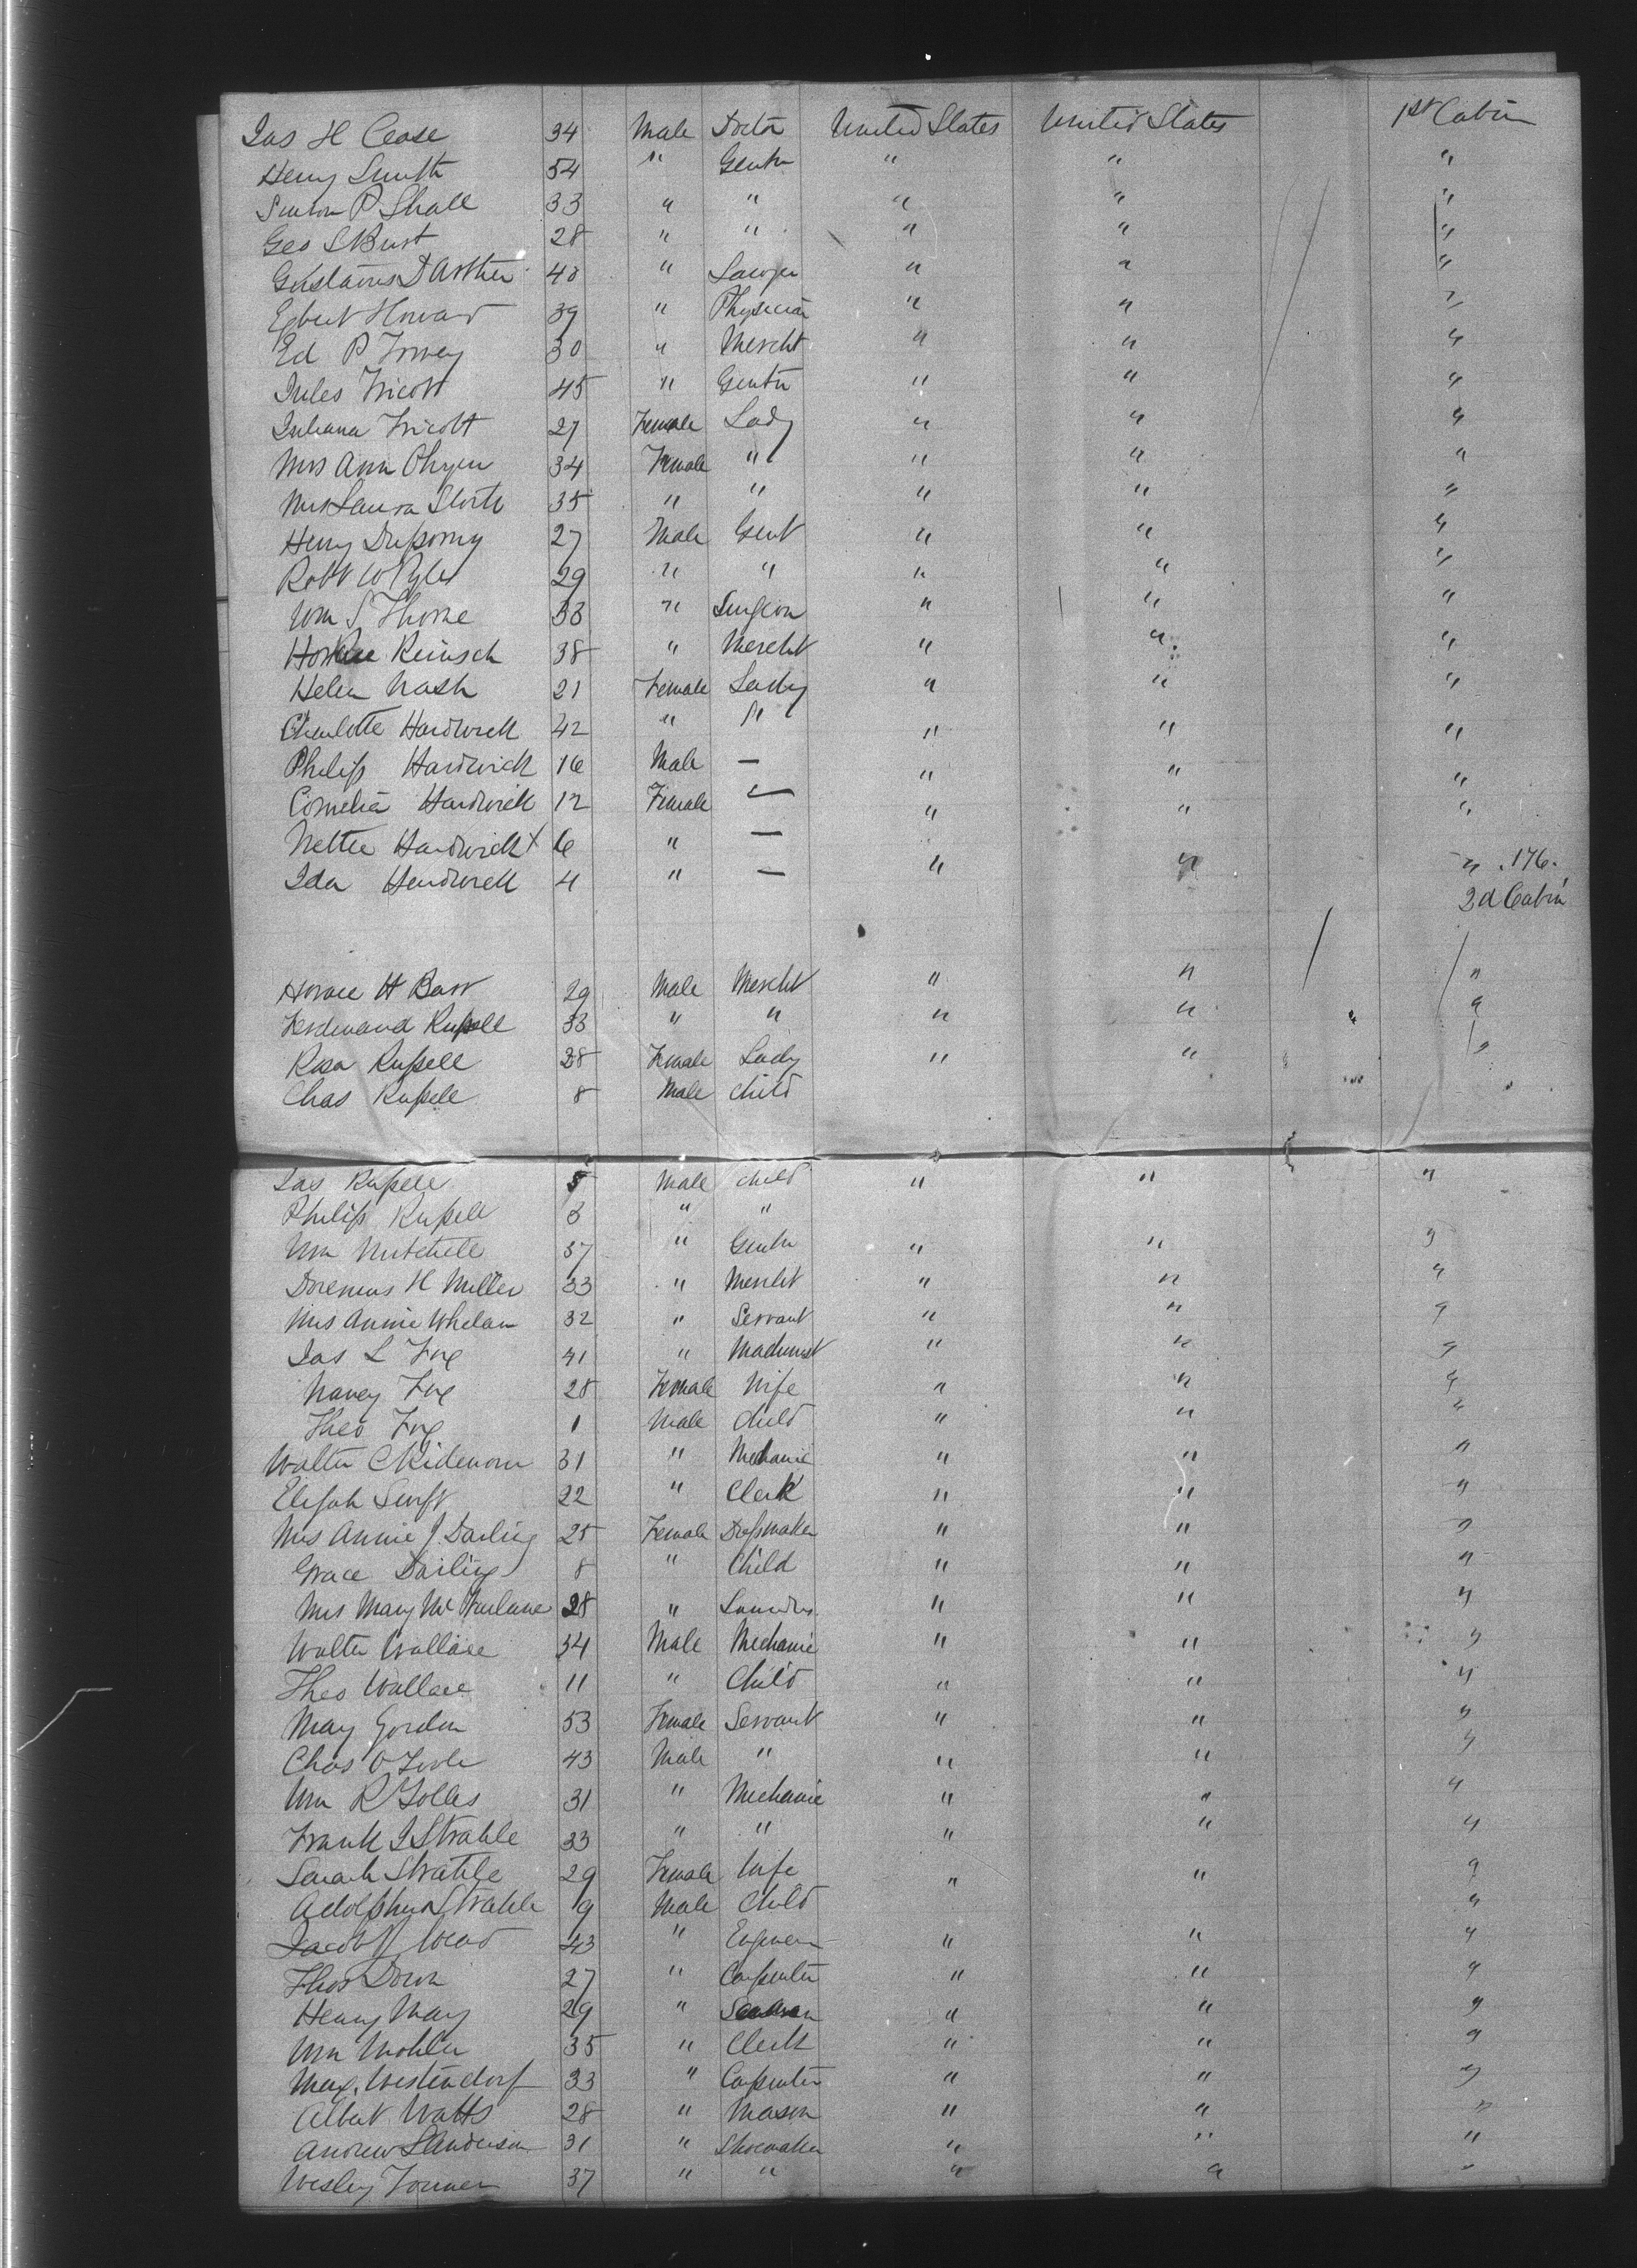 Jas H Cease 34 Male Doctor United States United States 1st Cabin
Henry Smith 54 " Gentn " " "
P Shall 33 " " " " "
Geo S Bust 28 " " " " "
Gustavus D Arthur 40 " Lawyer " " "
Egbert Howard 39 " Physician " " "
Ed P 30 " Mercht " " "
Jules Tricott 45 " Gentn " " "
Juliana Tricott 27 Female Lady " " "
Mrs Ann 34 Female " " " "
Mrs Laura 35 " " " " "
Henry 27 Male Gent " " "
Robt W Pyle 29 " " " " "
Wm S Thorne 33 " Surgeon " " "
Reinisch 38 " Mercht " " "
Helen Nash 21 Female Lady " " "
Charlotte Hardwick 42 " " " " "
Philip Hardwick 16 Male — " " "
Cornelia Hardwick 12 Female — " " "
Nettie Hardwick X 6 " —
Ida Hardwick 4 " — " " " 176.
2d Cabin
Horace H Barr 29 Male Mercht " " "
Ferdinand Russell 33 " " " " "
Rosa Russell 28 Female Lady " " "
Chas Russell 8 Male Child
Jas Russell 5 Male Child " " "
Philip Russell 3 " "
Wm Mitchell 37 " Gentn " " "
Doremus H Miller 33 " Mercht " " "
Mrs Annie Whelan 32 " Servant " " "
Jas L Fox 41 " Machinist " " "
Nancy Fox 28 Female Wife " " "
Theo Fox 1 Male Child " " "
Walter C Ridenour 31 " Mechanic " " "
Elijah Swift 22 " Clerk " " "
Mrs Annie J. Darling 25 Female Dressmaker " " "
Grace Darling 8 " Child " " "
Mrs Mary McFarlane 28 " Laundrs. " " "
Walter Wallace 34 Male Mechanic " " "
Theo Wallace 11 " Child " " "
May Gordon 53 Female Servant " " "
Chas O Toole 43 Male " " " "
Wm R Golles 31 " Mechanic " " "
Frank J Strahle 33 " " " " "
Sarah Strahle 29 Female Wife " " "
Adolphus Strahle 9 Male Child "
Jacob 43 " Engineer " " "
Thos Dorn 27 " Carpenter " " "
Henry May 29 " Seaman " " "
Wm Mohler 35 " Clerk " " "
Max. Westendorf 33 " Carpenter " " "
Albert Watts 28 " Mason " " "
Andrew S Anderson 31 " Shoemaker " " "
Wesley 37 " " " " "